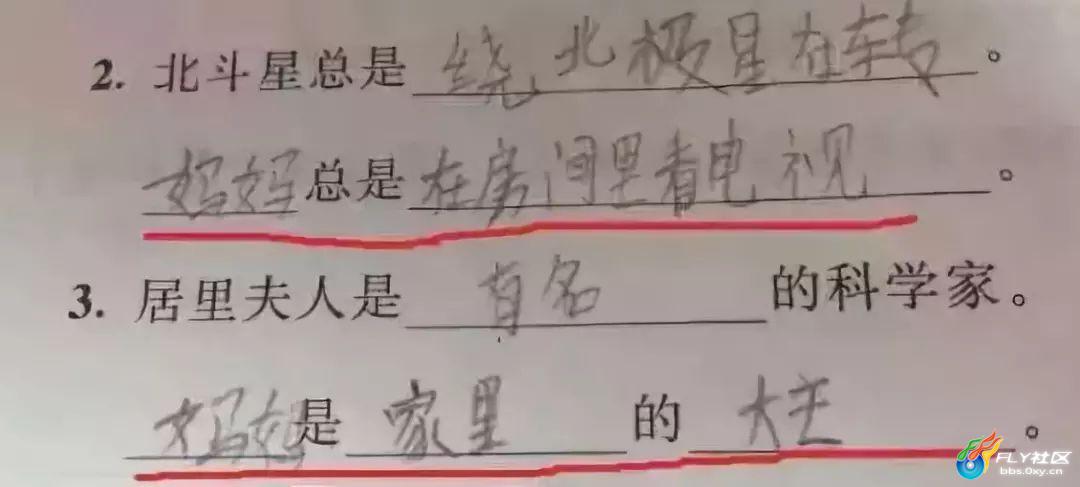 2. 北斗星总是绕北极星在转。
妈妈总是在房间里看电视。
3. 居里夫人是有名的科学家。
妈妈是家里的大王。
FLY社区
bbs.0xy.cn